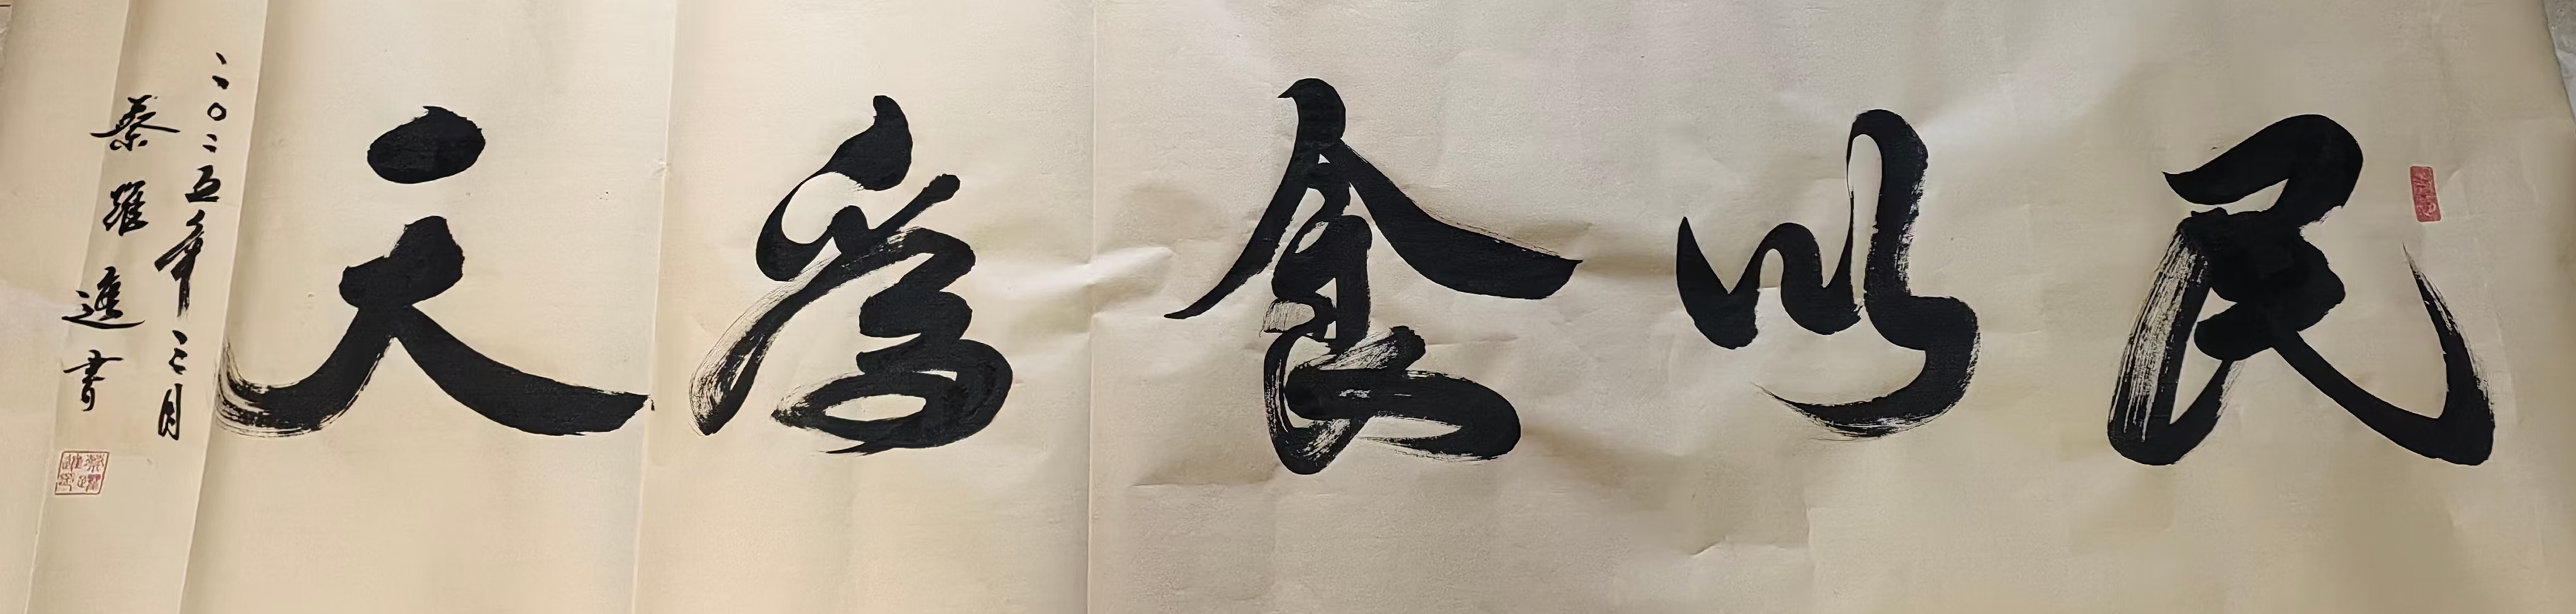 民以食為天
二〇二五年三月
蔡耀進書